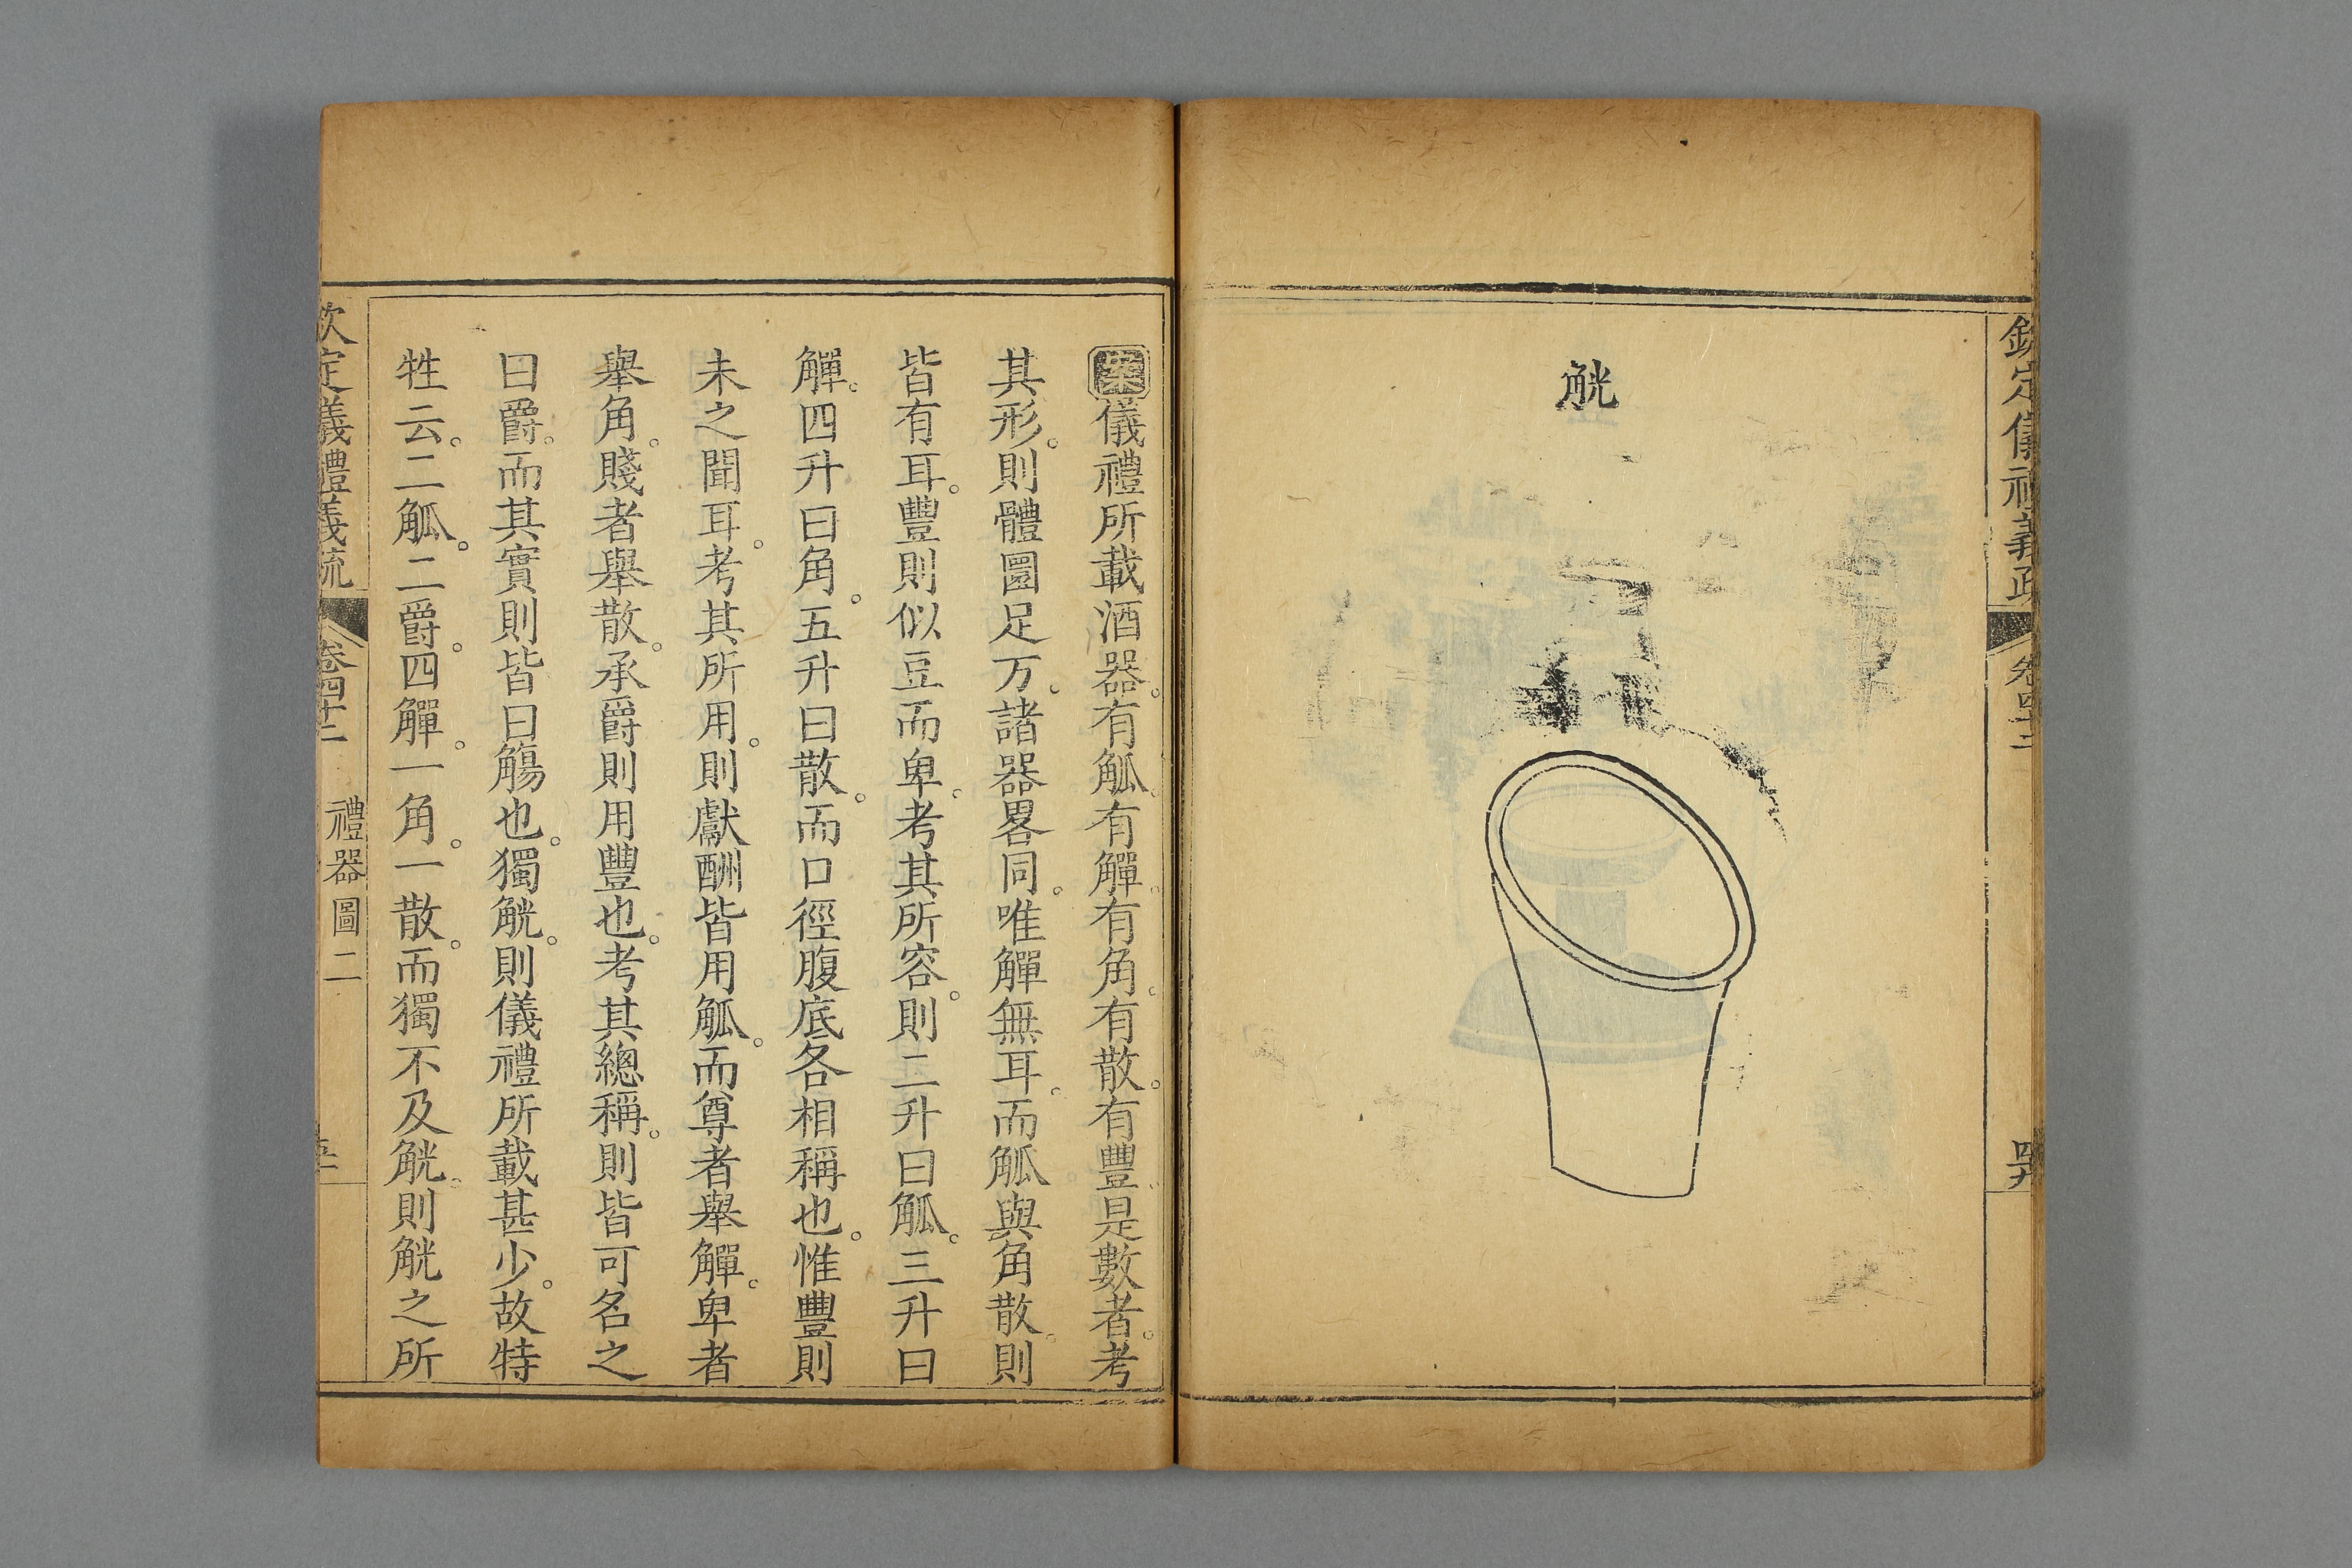 欽定儀禮義疏 卷四十二
觥
案儀禮所載酒器。有觚。有觶。有角。有散。有豐是數者。考
其形。則體圓足方。諸器畧同。唯觶無耳。而觚與角散。則
皆有耳。豐則似豆而卑。考其所容。則二升曰觚。三升曰
觶。四升曰角。五升曰散。而口徑腹底各相稱也。惟豐則
未之聞耳。考其所用。則獻酬皆用觚。而尊者舉觶。卑者
舉角。賤者舉散。承爵則用豐也。考其總稱。則皆可名之
曰爵。而其實則皆曰觴也。獨觥。則儀禮所載甚少。故特
牲云。二觚。二爵。四觶。一角。一散。而獨不及觥。則觥之所
欽定儀禮義疏 卷四十二 禮器圖二